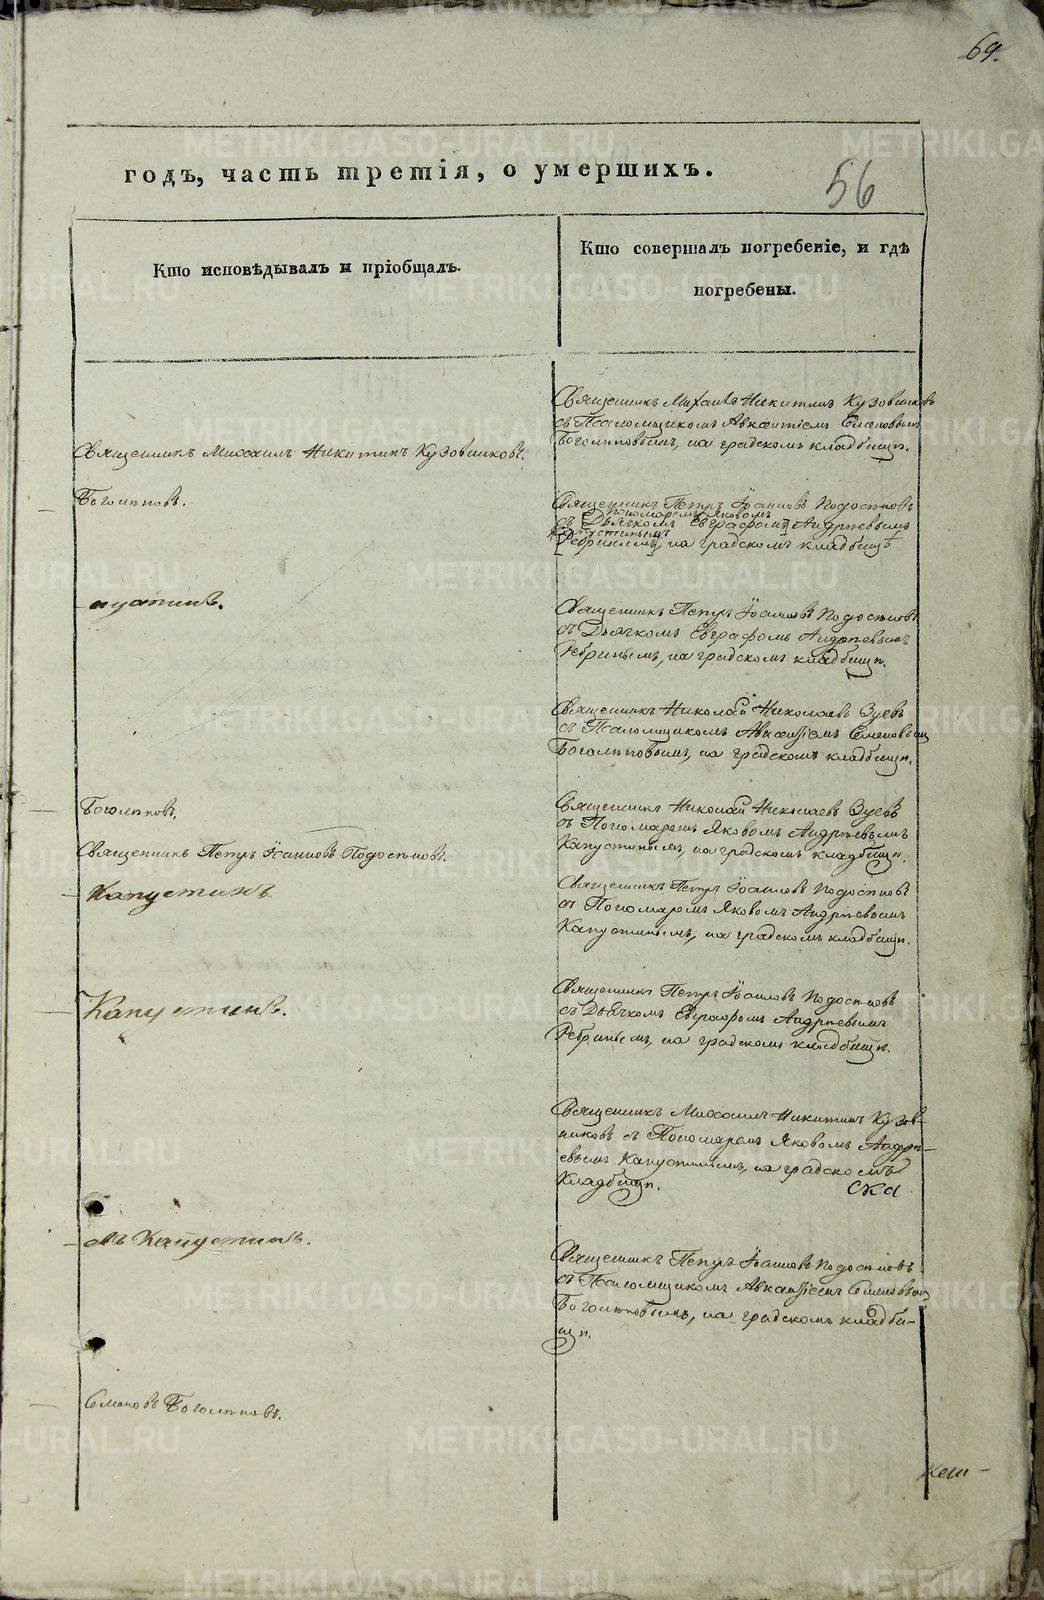 69.
годъ, часть третія, о умершихъ.
56
Кто исповѣдывалъ и пріобщалъ.
Кто совершалъ погребеніе, и гдѣ
погребены.
Священникъ Михаилъ Никитинъ Кузовниковъ
съ Псаломщикомъ Авксентіемъ Семеновымъ
Боголѣповымъ, на градскомъ кладбищѣ.
Священникъ Михаилъ Никитинъ Кузовниковъ.
Боголѣповъ.
Священникъ Петръ Іоанновъ Подосѣновъ
Пономаремъ Яковомъ
съ Дьячкомъ Евграфомъ Андрѣевымъ
Капустинымъ
Ребринымъ, на градскомъ кладбищѣ
пустинъ.
Священникъ Петръ Іоанновъ Подосѣновъ
съ Дьячкомъ Евграфомъ Андрѣевымъ
Ребринымъ, на градскомъ кладбищѣ.
Священникъ Николай Николаевъ Зуевъ
съ Псаломщикомъ Авксентіемъ Семеновымъ
Боголѣповымъ, на градскомъ кладбищѣ.
Боголѣповъ.
Священникъ Николай Николаевъ Зуевъ
съ Пономаремъ Яковомъ Андрѣевымъ
Капустинымъ, на градскомъ кладбищѣ.
Священникъ Петръ Іоанновъ Подосѣновъ.
Капустинъ
Священникъ Петръ Іоанновъ Подосѣновъ
съ Пономаремъ Яковомъ Андрѣевымъ
Капустинымъ, на градскомъ кладбищѣ.
Капустинъ.
Священникъ Петръ Іоанновъ Подосѣновъ
съ Дьячкомъ Евграфомъ Андрѣевымъ
Ребринымъ, на градскомъ кладбищѣ.
Священникъ Михаилъ Никитинъ Кузов-
никовъ съ Пономаремъ Яковомъ Андрѣ-
евымъ Капустинымъ, на градскомъ
Кладбищѣ.
ска
въ Капустинъ.
Священникъ Петръ Іоанновъ Подосѣновъ
съ Псаломщикомъ Авксентіемъ Семеновымъ
Боголѣповымъ, на градскомъ кладби-
щѣ.
Семеновъ Боголѣповъ.
METRIKI.GASO-URAL.RU